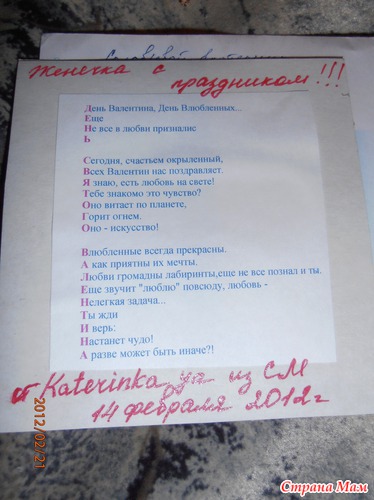 Женечка с
праздником!!!
День Валентина, День Влюбленных...
Еще
Не все в любви признались
Ь
Сегодня, счастьем окрыленный,
Всех Валентин нас поздравляет.
Я знаю, есть любовь на свете!
Тебе знакомо это чувство?
Оно витает по планете,
Горит огнем.
Оно - искусство!
Влюбленные всегда прекрасны.
А как приятны их мечты.
Любви громадны лабиринты,еще не все познал и ты.
Еще звучит "люблю" повсюду, любовь -
Нелегкая задача...
Ты жди
И верь:
Настанет чудо!
А разве может быть иначе?!
от Katerinka из СМ
14 февраля 2012г
2012/02/21
Страна Мам